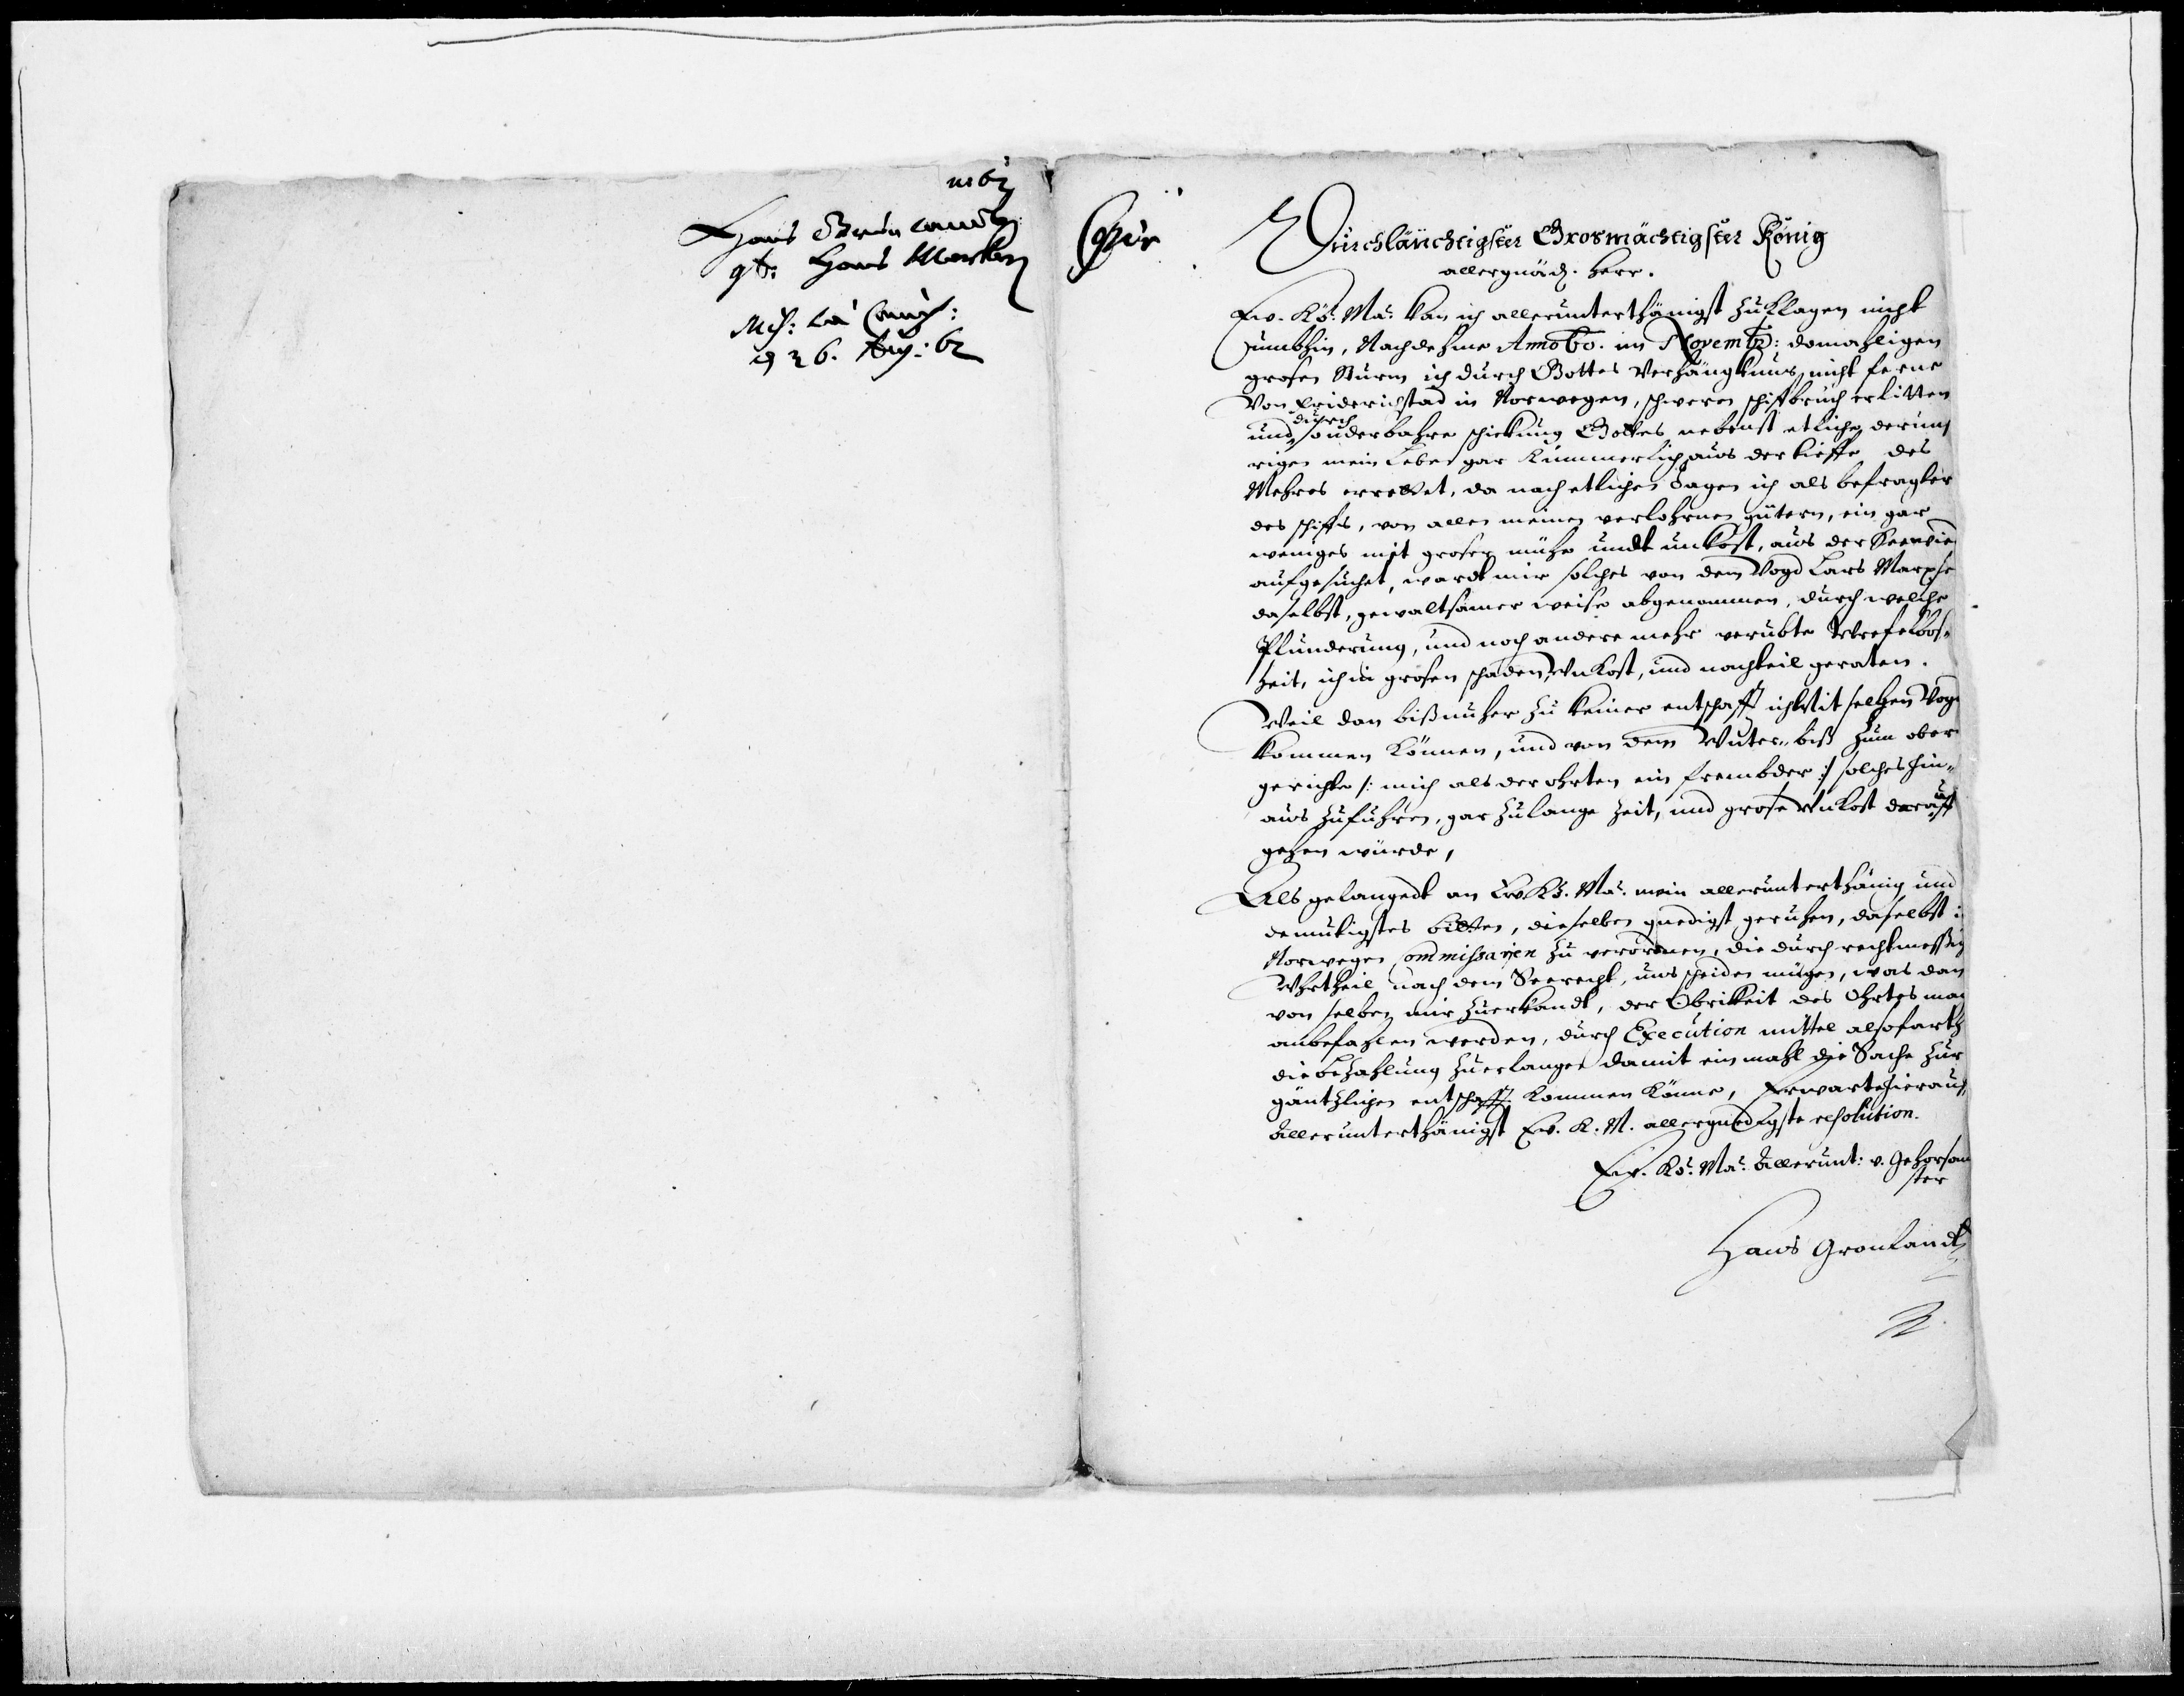 Hans Grönlandt
Hans
26. Aug: 62
Copia
Durchläuchtigster Grosmächtigster König
allergnäd. Herr.
Ew. Kö: Ma: kan ich alleruntterthänigst zu klagen nicht
umbhin, Nachdehme Anno 60. im Novemb: domahligen
grosen Sturm ich durch Gottes Verhängknus, nicht ferne
Von Friderichstad in Norwegen, schweren schiffbruch erlitten
durch
und sonderbahre schickung Gottes nebenst etliche der uns
rigen mein Leben gar kümmerlich aus der tieffe des
Mehres errettet, da nach etlichen Tagen ich als befragter
des schiffs, von allen meinen verlohrnen gütern, ein gar
weniges mit grosen mühe undt unkost, aus der See wie
aufgesuchet, wardt mir solches von dem Vogd Lars Marxse
daselbst, gewaltsamer weise abgenommen, durch welche
Plünderung, und noch andere mehr verübte
heit, ich in grosen schaden, Unkost, und nachteil geraten.
Weil dan bißnuher zu keiner entschafft ich Mit selben Vogd
kommen können, und von dem Unter- biß zum ober
gerichte /: mich als der ohrten ein frembder :/ solches hin-
aus zuführen, gar zulange Zeit, und grose Unkost darauff
gehen würde,
Als gelangedt an Ew. Kö. Ma: mein alleruntterthänig und
demütigstes bitten, dieselben gnedigst geruhen, daselbst i
Norwegen Commissarien zu verordnen, die durch rechtmessig
Uhrtheil nach dem Seerecht, uns scheiden mügen, was dan
von selben mir zuerkandt, der Obrikkeit des Ohrtes mag
anbefahlen werden, durch Execution mittel alsofarth
die bezahlung zuerlangen damit ein mahl die Sache zur
gäntzlichen entschafft kommen könne, Erwarte hierauf
Alleruntterthänigst Ew. K. M. allergnedigste resolution.
Ew. Kö: Ma: Allerunt: v. Gehorsam
ster
Hans Gronlandt